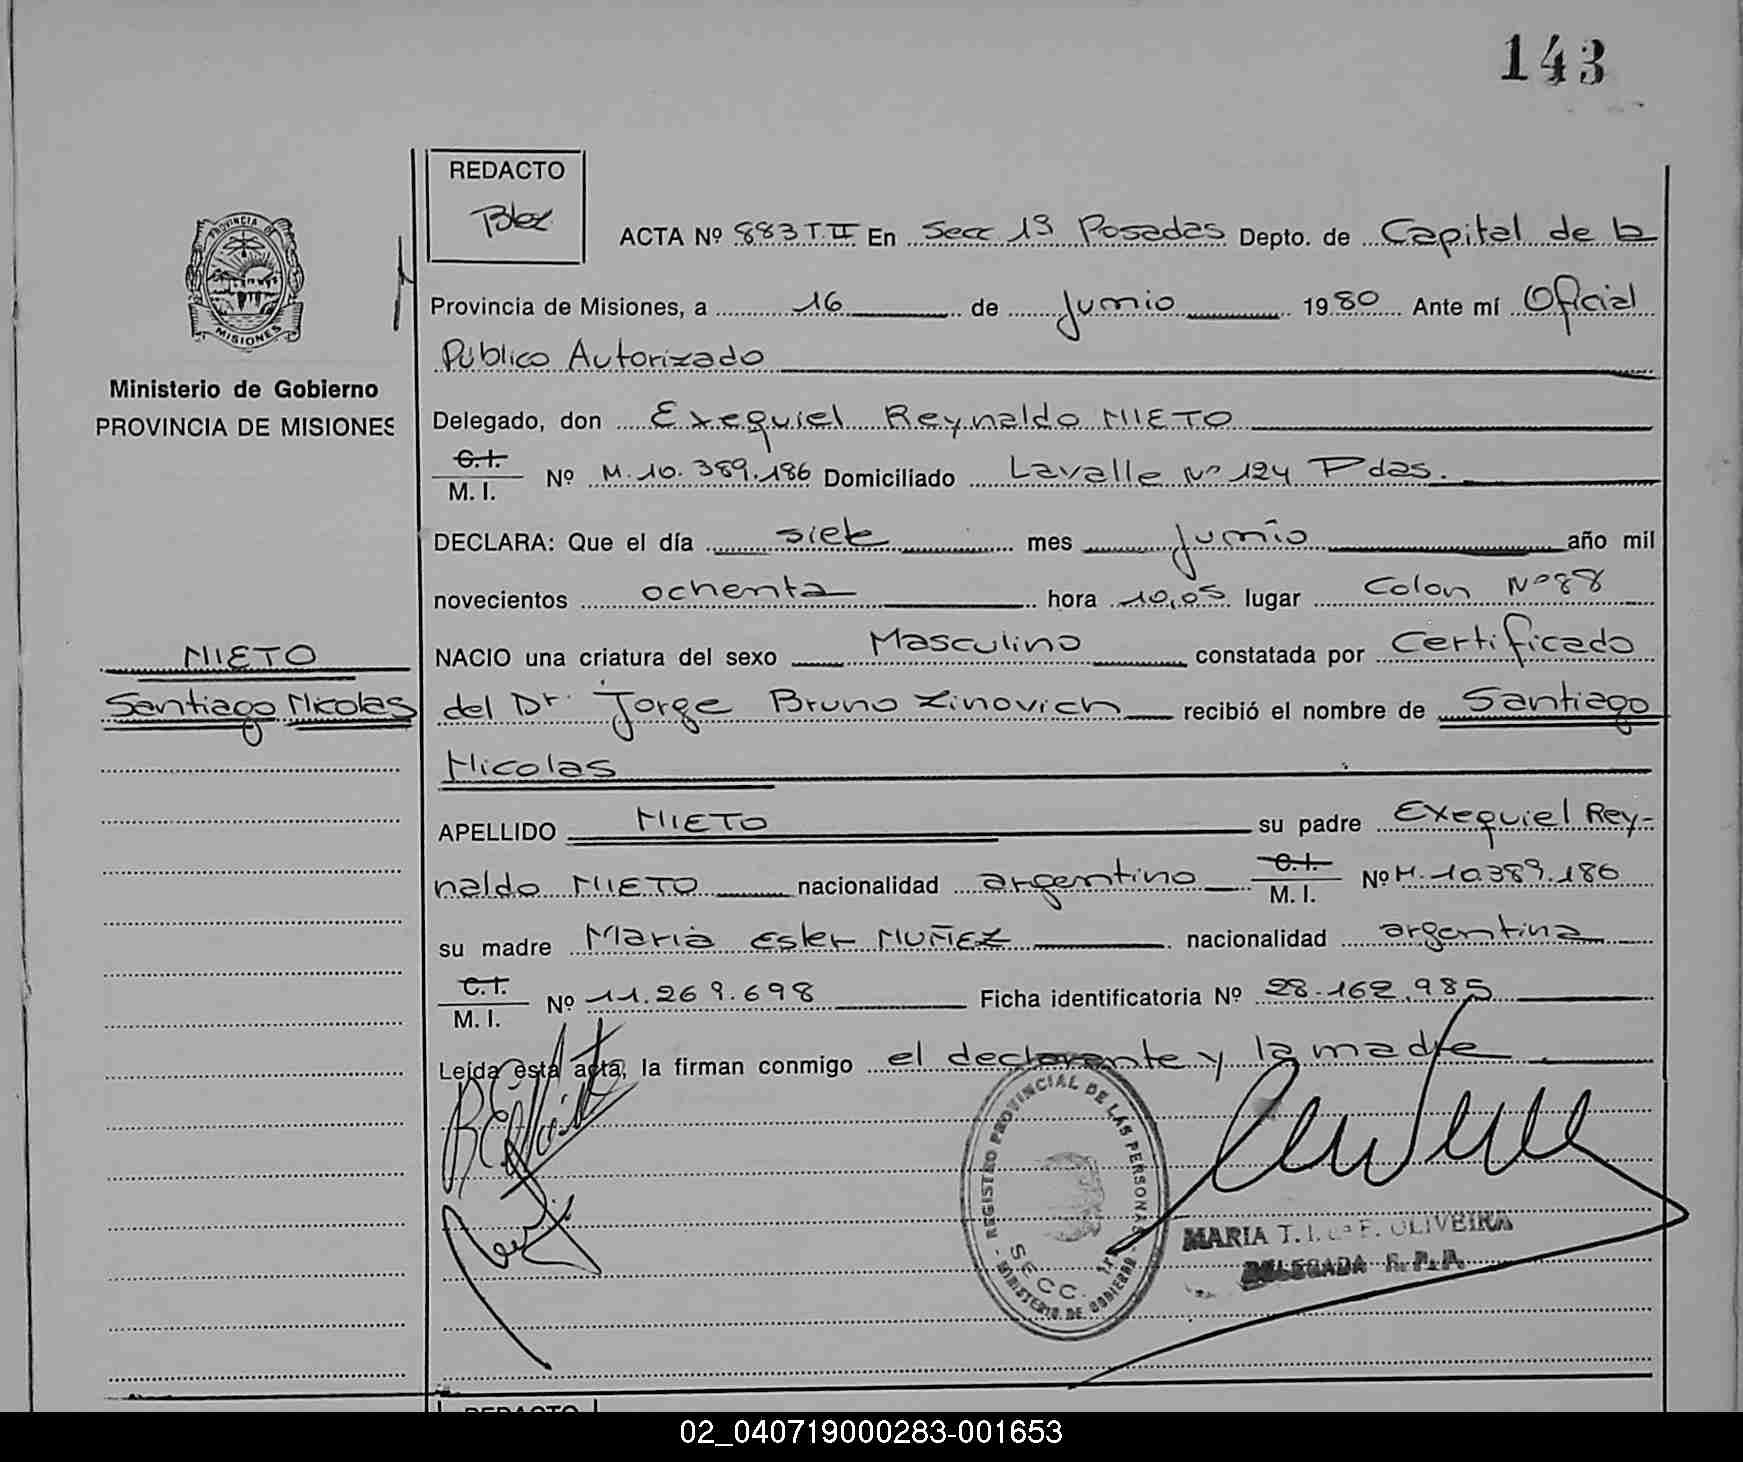 143
REDACTO
ACTA Nº 883 T. II En Secc 1ª Posadas Depto. de Capital de la
PROVINCIA DE
MISIONES
Provincia de Misiones, a 16 de Junio 1980 Ante mí Oficial
Público Autorizado
Ministerio de Gobierno
PROVINCIA DE MISIONES
Delegado, don Exequiel Reynaldo NIETO
C.I.
M. I. Nº M. 10.389.186 Domiciliado Lavalle Nº 124 Pdas.
DECLARA: Que el día siete mes Junio año mil
novecientos ochenta hora 10,05 lugar Colon Nº 88
NIETO
NACIO una criatura del sexo Masculino constatada por Certificado
Santiago Nicolas
del Dr. Jorge Bruno Zinovich recibió el nombre de Santiago
Nicolas
APELLIDO NIETO su padre Exequiel Rey-
naldo NIETO nacionalidad argentino C.I. M. I. Nº M. 10.389.186
su madre Maria Ester MUÑEZ nacionalidad argentina
C.I.
M. I. Nº 11.269.698 Ficha identificatoria Nº 28.162.985
Leida esta acta, la firman conmigo el declarante y la madre
REGISTRO PROVINCIAL DE LAS PERSONAS
SECC. 1ª
MINISTERIO DE GOBIERNO
MARIA T. I. de F. OLIVEIRA
DELEGADA R. P. P.
REDACTO
02_040719000283-001653